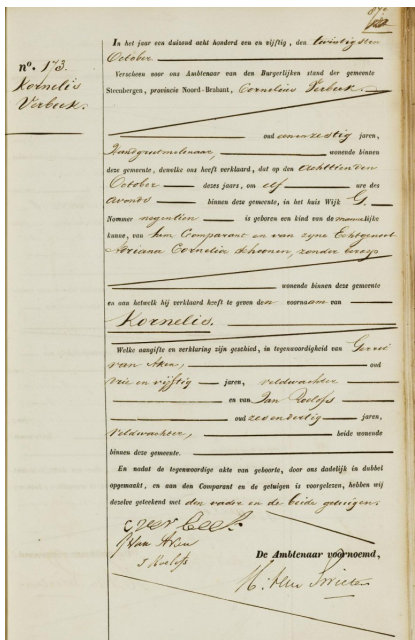 n°. 173.
Kornelis
Verbeek.
In het jaar een duizend acht honderd een en vijftig, den twintigsten
October
Verscheen voor ons Ambtenaar van den Burgerlijken stand der gemeente
Steenbergen, provincie Noord-Brabant, Cornelius Verbeek
oud een en zestig jaren,
wonende binnen
deze gemeente, dewelke ons heeft verklaard, dat op den achttienden
October dezes jaars, om elf ure des
avonds binnen deze gemeente, in het huis Wijk G.
Nummer negentien is geboren een kind van de mannelijke
kunne, van hem Comparant en van zijne Echtgenoot
Adriana Cornelia zonder beroep
wonende binnen deze gemeente
en aan hetwelk hij verklaard heeft te geven den voornaam van
Kornelis.
Welke aangifte en verklaring zijn geschied, in tegenwoordigheid van Gerrit
van Aken, oud
drie en vijftig jaren, veldwachter
en van Jan Roelofs
oud zevendertig jaren,
veldwachter, beide wonende
binnen deze gemeente.
En nadat de tegenwoordige akte van geboorte, door ons dadelijk in dubbel
opgemaakt, en aan den Comparant en de getuigen is voorgelezen, hebben wij
dezelve geteekend met den vader en de beide getuigen.
C verbeek.
G Van Aken
J Roelofs
De Ambtenaar voornoemd,